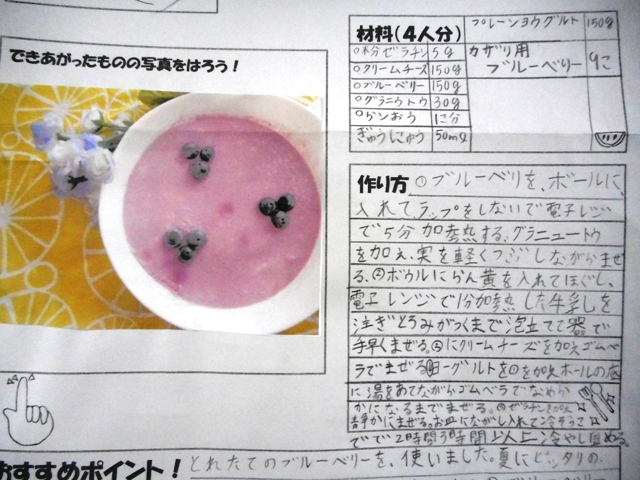 できあがったものの写真をはろう！
材料（4人分）
粉ゼラチン 5g
クリームチーズ 150g
ブルーベリー 150g
グラニウトウ 30g
らんおう 2こ分
ぎゅうにゅう 50mℓ
プレーンヨウグルト 150g
カザリ用
ブルーベリー 9こ
作り方 ①ブルーベリを、ボールに、
入れて、ラップをしないで電子レンジ
で5分加熱する。グラニュートウ
を加え、実を軽くつぶしながらまぜ
る。②ボウルにらん黄を入れてほぐし、
電子レンジで1分加熱した牛乳を
注ぎとろみがつくまで泡立て器で
手早くまぜる。③にクリームチーズを加えゴムベ
ラでまぜる ヨーグルトを①を加えボールの底
に湯をあてながらゴムベラでなめら
かになるまでまぜる。ゼラチンを加え
静かにまぜる。お皿にながし入れて冷ぞうこ
で2時間 以上冷やし固める。
おすすめポイント！
とれたてのブルーベリーを、使いました。夏にピッタリの